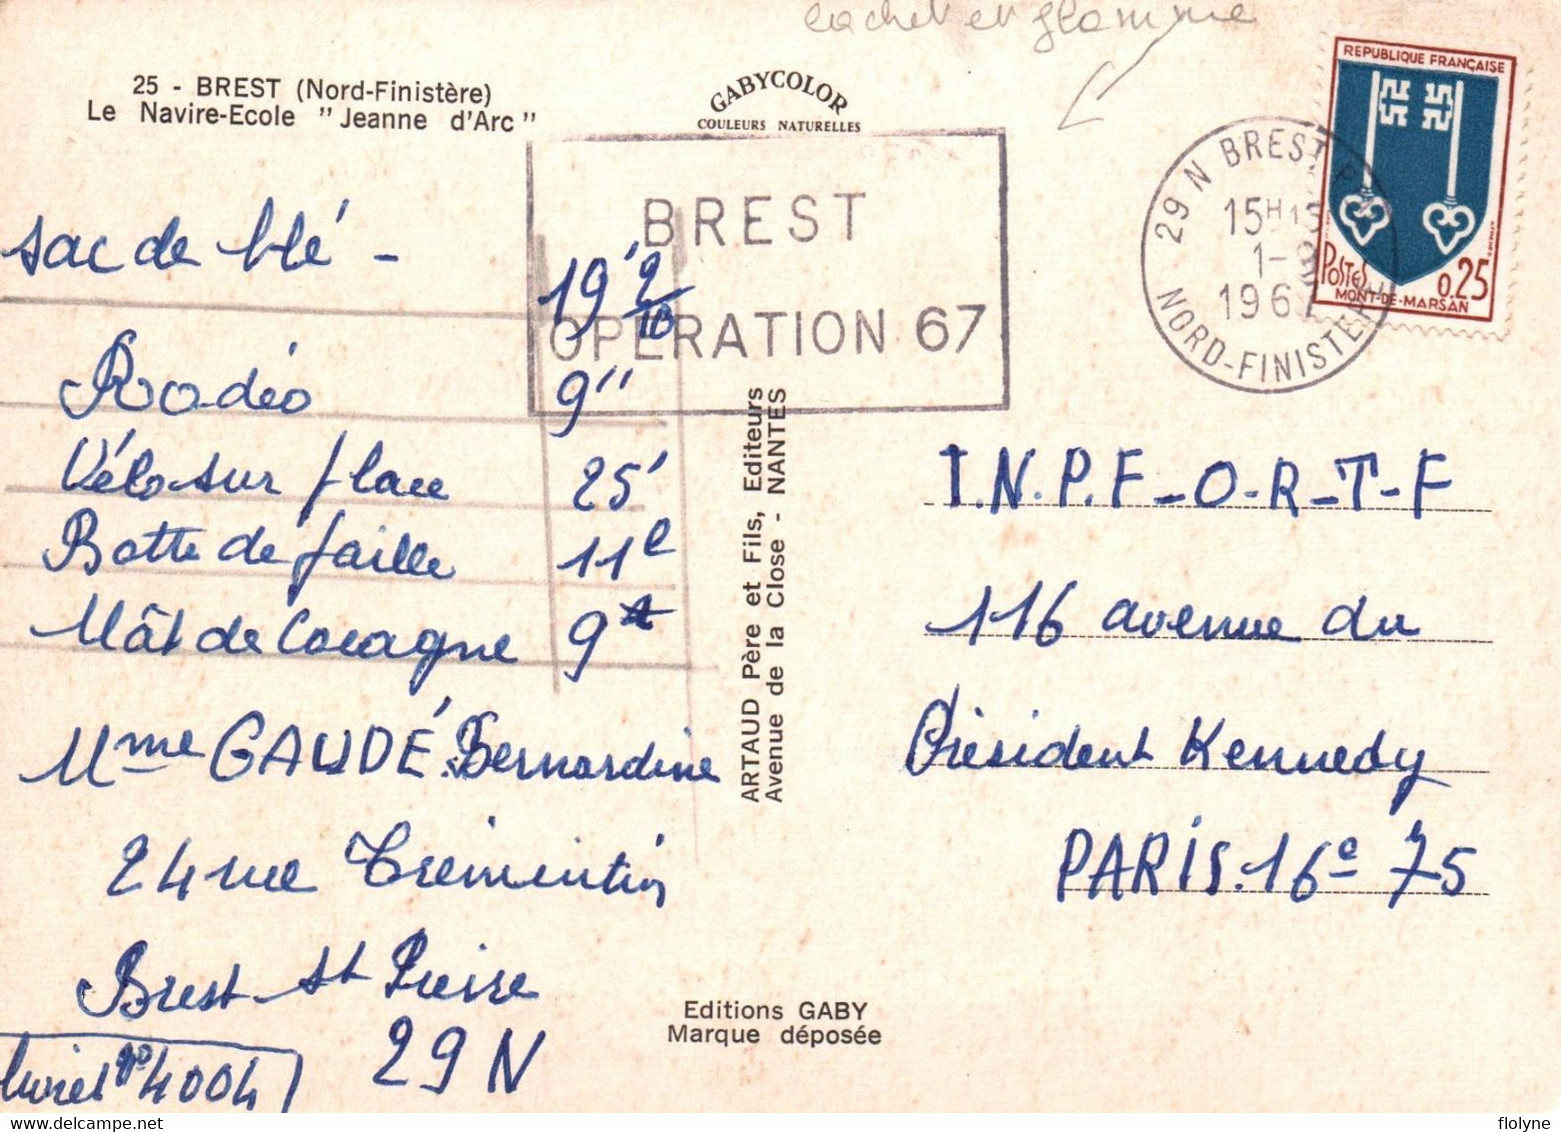 cachet et flamme
25 - BREST (Nord-Finistère)
Le Navire-Ecole "Jeanne d'Arc"
GABYCOLOR
COULEURS NATURELLES
REPUBLIQUE FRANÇAISE
POSTES 0,25
MONT-DE-MARSAN
29 N BREST
15H
1-
1967
NORD-FINISTERE
BREST
OPERATION 67
sac de blé - 19' 2/10
Rodéo 9"
Vélo sur place 25'
Botte de paille 11e
Mât de Cocagne 9
Mme GAUDÉ Bernardine
24 rue Trémintin
Brest St Pierre
29 N
livret n° 4004
ARTAUD Père et Fils, Editeurs
Avenue de la Close - NANTES
I.N.P.F-O-R-T-F
116 avenue du
Président Kennedy
PARIS.16e 75
Editions GABY
Marque déposée
flolyne